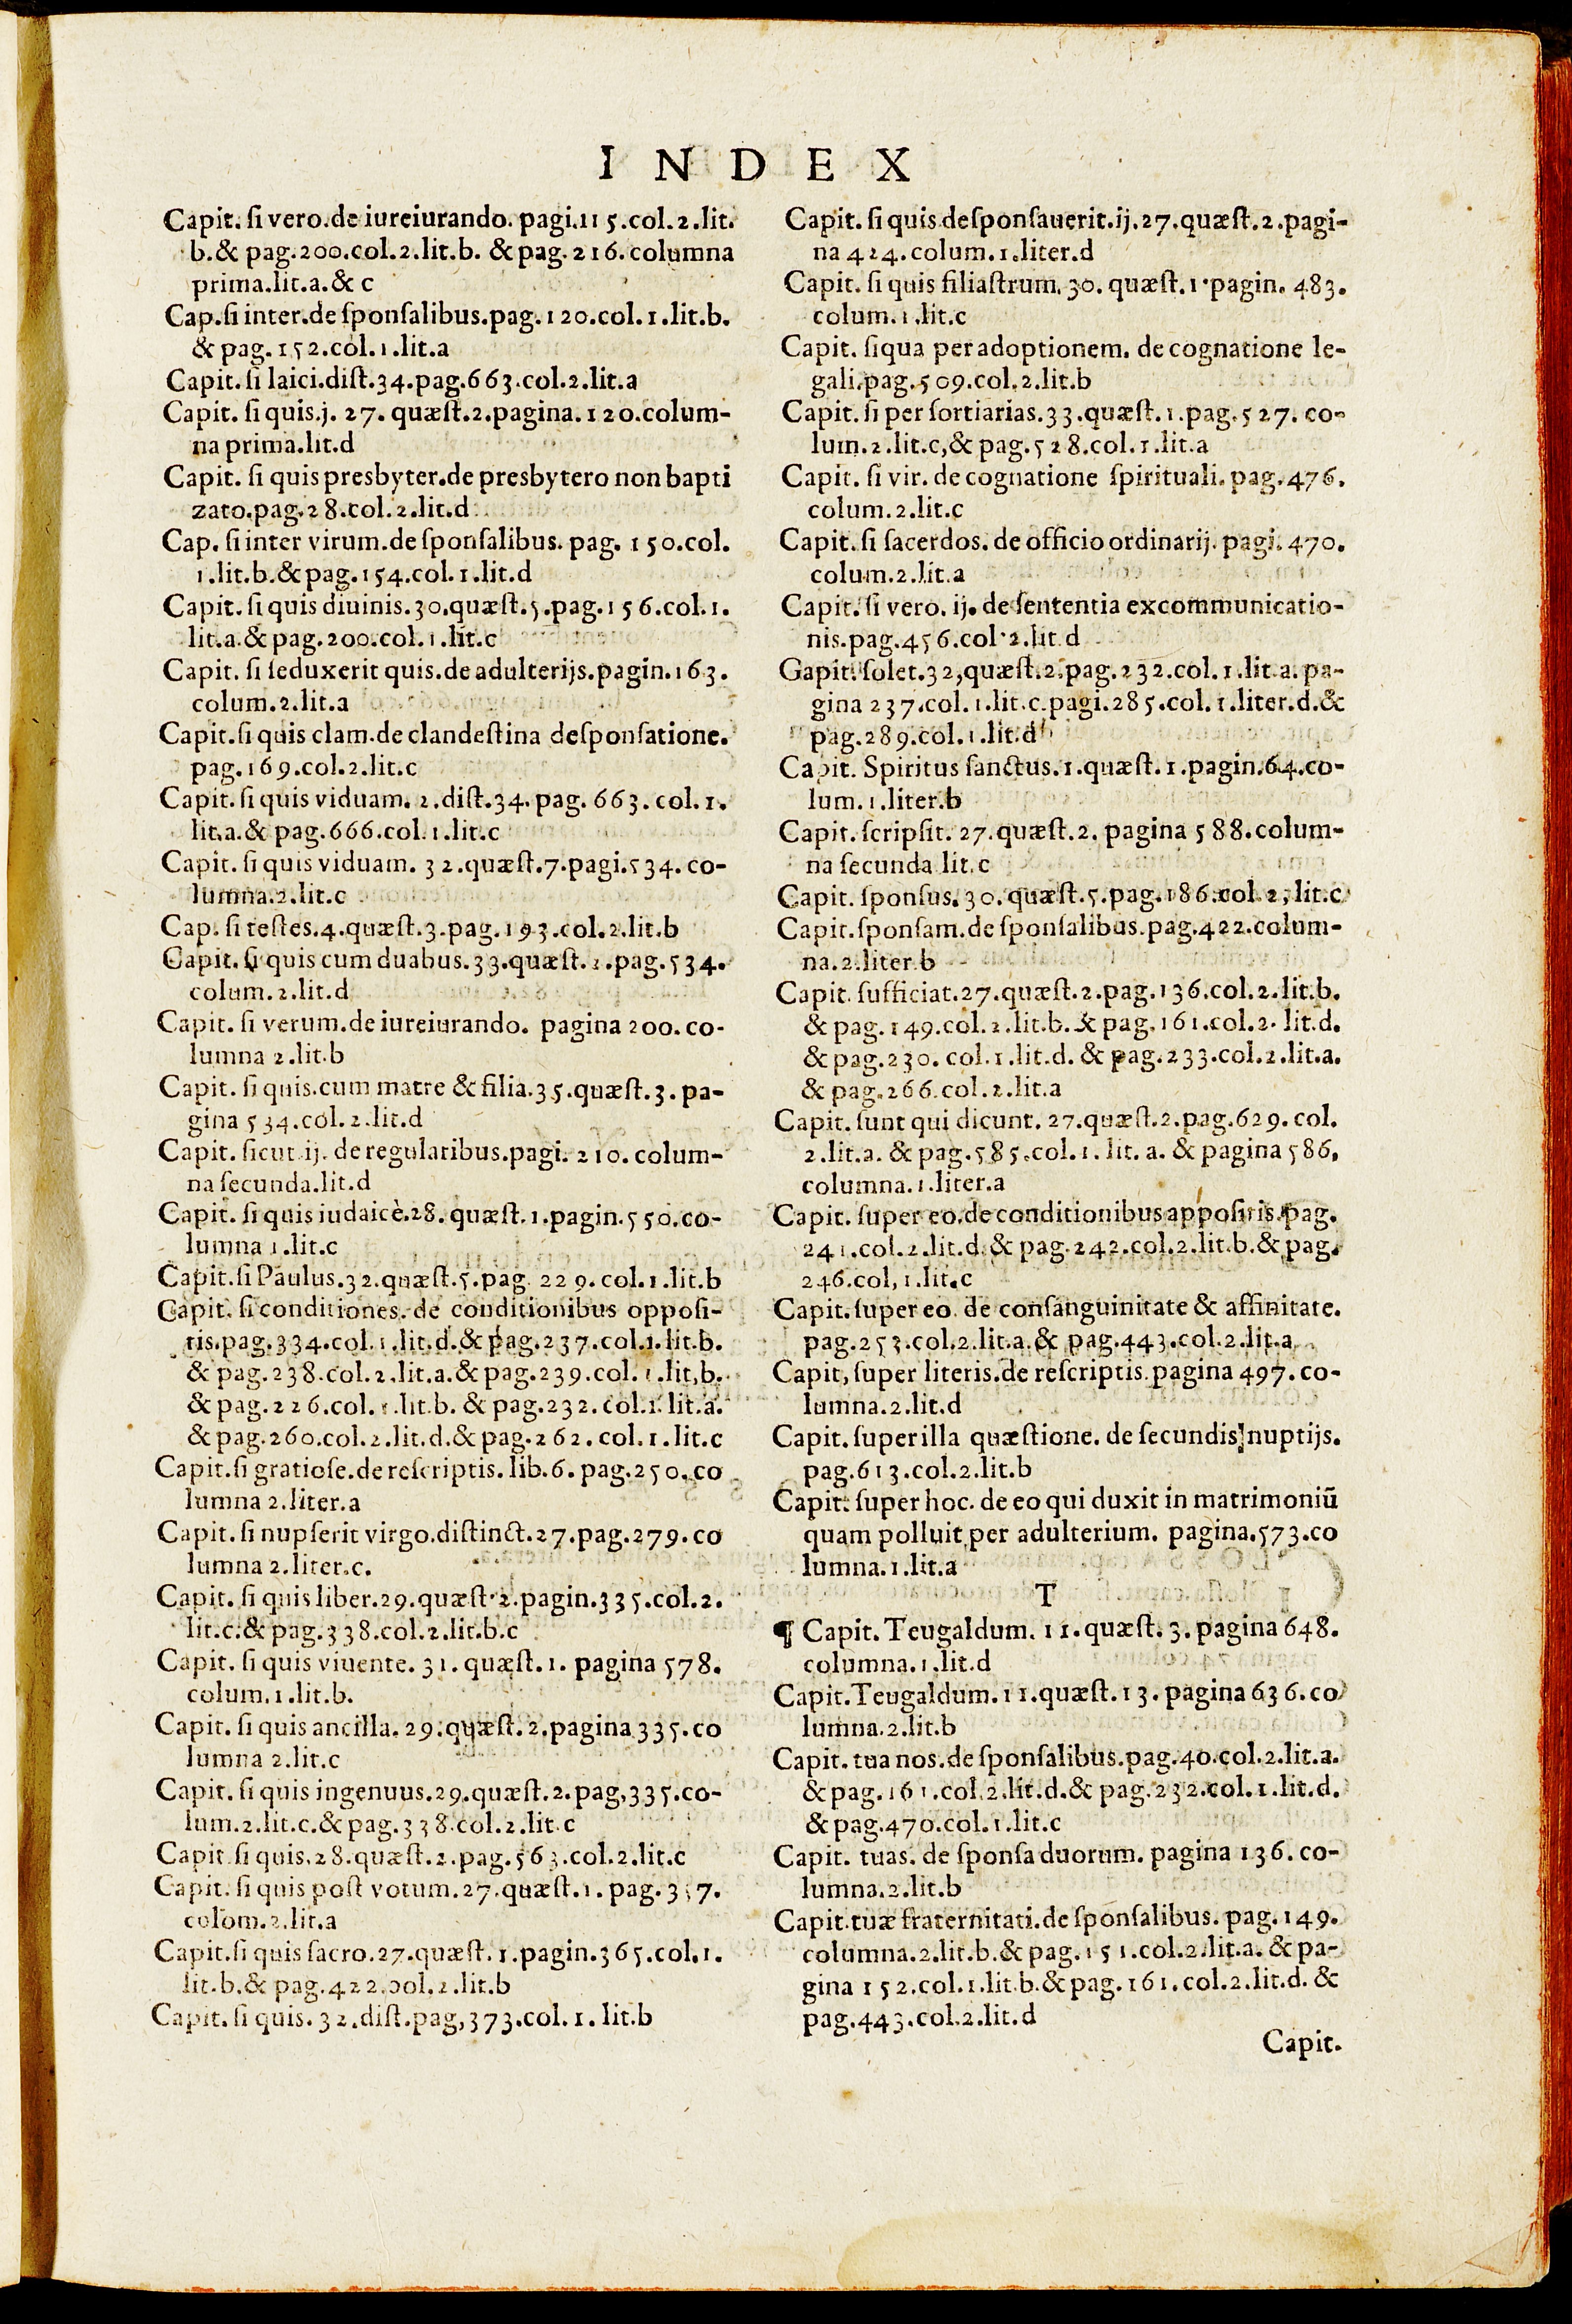 INDEX
Capit. ſi vero.de iureiurando. pagi.115.col.2.lit.
b.& pag.200.col.2.lit.b. & pag.216.columna
prima.lit.a.& c
Cap.ſi inter.de ſponſalibus.pag.120.col.1.lit.b.
& pag.152.col.1.lit.a
Capit. ſi laici.diſt.34.pag.663.col.2.lit.a
Capit. ſi quis.j. 27. quæſt.2.pagina.120.colum-
na prima.lit.d
Capit. ſi quis presbyter.de presbytero non bapti
zato.pag.28.col.2.lit.d
Cap. ſi inter virum.de ſponſalibus. pag. 150.col.
1.lit.b.& pag.154.col.1.lit.d
Capit. ſi quis diuinis.30.quæſt.5.pag.156.col.1.
lit.a.& pag.200.col.1.lit.c
Capit. ſi ſeduxerit quis.de adulterijs.pagin.163.
colum.2.lit.a
Capit.ſi quis clam.de clandeſtina deſponſatione.
pag.169.col.2.lit.c
Capit. ſi quis viduam. 2.diſt.34. pag. 663. col.1.
lit.a.& pag.666.col.1.lit.c
Capit. ſi quis viduam. 32.quæſt.7.pagi.534.co-
lumna.2.lit.c
Cap. ſi teſtes.4.quæſt.3.pag.193.col.2.lit.b
Capit. ſi quis cum duabus.33.quæſt.2.pag.534.
colum.2.lit.d
Capit. ſi verum.de iureiurando. pagina 200.co-
lumna 2.lit.b
Capit. ſi quis.cum matre & filia.35.quæſt.3. pa-
gina 534.col.2.lit.d
Capit. ſicut ij. de regularibus.pagi. 210. colum-
na ſecunda.lit.d
Capit. ſi quis iudaicè.28. quæſt.1.pagin.550.co-
lumna 1.lit.c
Capit.ſi Paulus.32.quæſt.5.pag. 229.col.1.lit.b
Capit. ſi conditiones. de conditionibus oppoſi-
tis.pag.334.col.1.lit.d.& pag.237.col.1.lit.b.
& pag.238.col.2.lit.a.& pag.239.col.1.lit,b.
& pag.226.col.1.lit.b. & pag.232.col.1.lit.a.
& pag.260.col.2.lit.d.& pag.262.col.1.lit.c
Capit.ſi gratioſe.de reſcriptis. lib.6. pag.250.co
lumna 2.liter.a
Capit. ſi nupſerit virgo.diſtinct.27.pag.279.co
lumna 2.liter.c.
Capit. ſi quis liber.29.quæſt.2.pagin.335.col.2.
lit.c.& pag.338.col.2.lit.b.c
Capit. ſi quis viuente. 31. quæſt.1. pagina 578.
colum.1.lit.b.
Capit. ſi quis ancilla. 29.quæſt.2.pagina 335.co
lumna 2.lit.c
Capit. ſi quis ingenuus.29.quæſt.2.pag,335.co-
lum.2.lit.c.& pag.338.col.2.lit.c
Capit. ſi quis.28.quæſt.2.pag.563.col.2.lit.c
Capit. ſi quis poſt votum.27.quæſt.1. pag.
colom.2.lit.a
Capit.ſi quis ſacro.27.quæſt.1.pagin.365.col.1.
lit.b.& pag.422.col.2.lit.b
Capit. ſi quis. 32.diſt.pag,373.col.1.lit.b
Capit. ſi quis deſponſauerit.ij.27.quæſt.2.pagi-
na 424.colum.1.liter.d
Capit. ſi quis filiaſtrum. 30. quæſt.1.pagin. 483.
colum.1.lit.c
Capit. ſiqua per adoptionem. de cognatione le-
gali.pag.509.col.2.lit.b
Capit. ſi per ſortiarias.33.quæſt.1.pag.527.co-
lum.2.lit.c,& pag.528.col.1.lit.a
Capit. ſi vir. de cognatione ſpirituali. pag.476.
colum.2.lit.c
Capit. ſi ſacerdos. de officio ordinarij. pagi.470.
colum.2.lit.a
Capit. ſi vero. ij. de ſententia excommunicatio-
nis.pag.456.col.2.lit.d
Gapit.ſolet.32,quæſt.2.pag.232.col.1.lit.a.pa-
gina 237.col.1.lit.c.pagi.285.col.1.liter.d.&
pag.289.col.1.lit.d
Capit. Spiritus ſanctus.1.quæſt.1.pagin.64.co-
lum.1.liter.b
Capit. ſcripſit. 27.quæſt.2. pagina 588.colum-
na ſecunda lit.c
Capit. ſponſus.30.quæſt.5.pag.186.col.2,lit.c
Capit.ſponſam.de ſponſalibus.pag.422.colum-
na.2.liter.b
Capit. ſufficiat.27.quæſt.2.pag.136.col.2.lit.b.
& pag.149.col.2.lit.b.& pag.161.col.2.lit.d.
& pag.230. col.1.lit.d. & pag.233.col.2.lit.a.
& pag.266.col.2.lit.a
Capit. ſunt qui dicunt. 27.quæſt.2.pag.629.col.
2.lit.a. & pag.585.col.1.lit.a. & pagina 586,
columna.1.liter.a
Capit. ſuper eo.de conditionibus appoſitis.pag.
241.col.2.lit.d.& pag.242.col.2.lit.b.& pag.
246.col,1.lit.c
Capit.ſuper eo. de conſanguinitate & affinitate.
pag.253.col.2.lit.a.& pag.443.col.2.lit.a
Capit, ſuper literis.de reſcriptis.pagina 497.co-
lumna.2.lit.d
Capit.ſuper illa quæſtione. de ſecundis nuptijs.
pag.613.col.2.lit.b
Capit. ſuper hoc. de eo qui duxit in matrimoniū
quam polluit per adulterium. pagina.573.co
lumna.1.lit.a
T
¶ Capit. Teugaldum. 11.quæſt.3. pagina 648.
columna.1.lit.d
Capit.Teugaldum.11.quæſt.13. pagina 636.co
lumna.2.lit.b
Capit. tua nos.de ſponſalibus.pag.40.col.2.lit.a.
& pag.161.col.2.lit.d.& pag.232.col.1.lit.d.
& pag.470.col.1.lit.c
Capit. tuas. de ſponſa duorum. pagina 136.co-
lumna.2.lit.b
Capit.tuæ fraternitati.de ſponſalibus. pag.149.
columna.2.lit.b.& pag.151.col.2.lit.a. & pa-
gina 152.col.1.lit.b.& pag.161.col.2.lit.d. &
pag.443.col.2.lit.d
Capit.